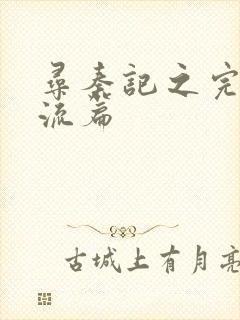 尋秦記之完
流篇
古城上有月亮